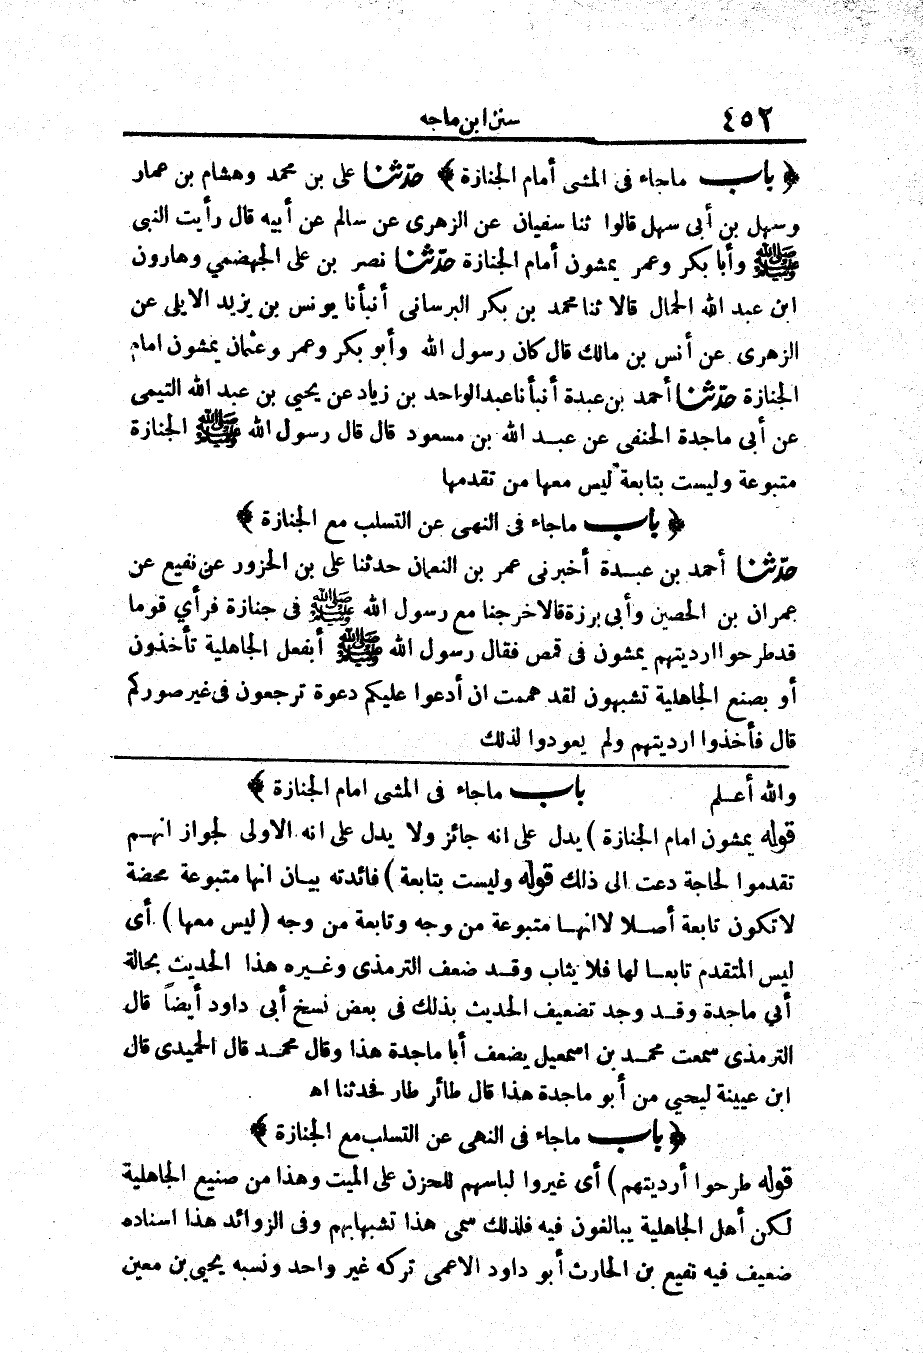 ٤٥٢
سنن ابن ماجه
﴿ باب ماجاء فى المشى أمام الجنازة ﴾ حدّثنا على بن محمد وهشام بن عمار
وسهل بن أبى سهل قالوا ثنا سفيان عن الزهرى عن سالم عن أبيه قال رأيت النبى
ﷺ وأبا بكر وعمر يمشون أمام الجنازة حدّثنا نصر بن على الجهضمي وهارون
ابن عبد الله الحمال قالا ثنا محمد بن بكر البرسانى أنبأنا يونس بن يزيد الايلى عن
الزهرى عن أنس بن مالك قال كان رسول الله وأبو بكر وعمر وعثمان يمشون امام
الجنازة حدّثنا أحمد بن عبدة أنبأنا عبدالواحد بن زياد عن يحيي بن عبد الله التيمى
عن أبى ماجدة الحنفى عن عبد الله بن مسعود قال قال رسول الله ﷺ الجنازة
متبوعة وليست بتابعة ليس معها من تقدمها
﴿ باب ماجاء فى النهى عن التسلب مع الجنازة ﴾
حدّثنا أحمد بن عبدة أخبرنى عمر بن النعمان حدثنا على بن الحزور عن نفيع عن
عمران بن الحصين وأبى برزة قالا خرجنا مع رسول الله ﷺ فى جنازة فرأي قوما
قد طرحوا ارديتهم يمشون فى قمص فقال رسول الله ﷺ أبفعل الجاهلية تأخذون
أو بصنع الجاهلية تشبهون لقد هممت ان أدعوا عليكم دعوة ترجعون فى غير صوركم
قال فأخذوا ارديتهم ولم يعودوا لذلك
والله أعلم باب ماجاء فى المشى امام الجنازة ﴾
قوله يمشون امام الجنازة ) يدل على انه جائز ولا يدل على انه الاولى لجواز انهم
تقدموا لحاجة دعت الى ذلك قوله وليست بتابعة ) فائدته بيان انها متبوعة محضة
لاتكون تابعة أصلا لاانها متبوعة من وجه وتابعة من وجه ( ليس معها ) أى
ليس المتقدم تابعا لها فلا يثاب وقد ضعف الترمذى وغيره هذا الحديث بحالة
أبي ماجدة وقد وجد تضعيف الحديث بذلك فى بعض نسخ أبى داود أيضاً قال
الترمذى سمعت محمد بن اسمعيل يضعف أبا ماجدة هذا وقال محمد قال الحميدى قال
ابن عيينة ليحيي من أبو ماجدة هذا قال طائر طار فحدثنا اه
﴿ باب ماجاء فى النهى عن التسلب مع الجنازة ﴾
قوله طرحوا أرديتهم ) أى غيروا لباسهم للحزن على الميت وهذا من صنيع الجاهلية
لكن أهل الجاهلية يبالغون فيه فلذلك سمى هذا تشبها بهم وفى الزوائد هذا اسناده
ضعيف فيه نفيع بن الحارث أبو داود الاعمى تركه غير واحد ونسبه يحيي بن معين